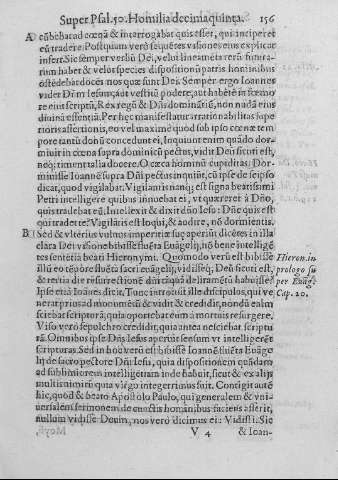 Super Psal. 50. Homilia decimaquinta. 156
A eū bēbat ad cœnā & interrogabat quis esset, qui inciperet
eū tradere. Postquam verò sequētes visiones eius explicat
infert. Sic semper verbū Dei, velut lineamēta rerū futura-
rum habet & velos species dispositionū patris hominibus
ostēdēbat docēs nos quæ sunt Dei. Semper ergo Ioannes
videt Dñm Iesum, aut vestitū podere, aut habētē in fœmo
re eius scriptū, Rex regū & Dñs dominātiū, non nudā eius
divinā essentiā. Per hęc manifestatur
perioris assertionis, eo vel maximè quod sub ipso cœnæ tem
pore tantū donū concedunt ei, inquiunt enim quādo dor-
miuit in cœna supra dominicū pectus, vidit Deū sicuti est,
neq; timent talia docere. O cæca hominū cupiditas: Dor-
misisse Ioannē supra Dñi pectus inquiūt, cū ipse de seipso
dicat, quod vigilabat. Vigilantis nanq; est signa beatissimi
Petri intelligere quibus innuebat ei, vt quæreret à Dño,
quis tradebat eū: Intellexit & dixit dño Iesu: Dñe quis est
qui tradet te? Vigilātis est loqui, & audire, nō dormientis.
B Sed & vlterius vultus imperitiæ suę aperiūt dicētes in illa
clara Dei visione bibisse fluēta Euāgelij, nō bene intelligē
tes sentētiā beati Hieronymi. Quomodo verò est bibisse
illū eo tēpore fluēta sacri euāgelij, vidisseq; Deū sicuti est,
& tertia die resurrectionē dñicā quā deliramētū habuisse?
Ipse etiā Ioānes dicit, Tunc introiuit ille discipulus, qui ve
nerat prius ad monumētū & vidit & credidit, nondū enim
sciebat scripturā quia oportebat eum à mortuis resurgere.
Viso verò sepulchro credidit, quia antea nesciebat scriptu
rā. Omnibus ipse Dñs Iesus aperuit sensum vt intelligerēt
scripturas. Sed in hoc verò est bibisse Ioannē fluēta Euāge
lij de sacro pectore Dñi Iesu, quia dispositionem quādam
ad sublimiorem intelligētiam inde habuit, sicut & ex alijs
multis nimirū quia virgo integerrimus fuit. Contigit autē
hic, quod & beato Apostolo Paulo, qui generalem & vni-
uersalem sermonem de cunctis hominibus faciens asserit,
nullum vidisse Deum, nos verò dicimus ei: Vidisti. Sic
V 4 & Ioan-
Hieron. in
prologo su
per Euāg.
Cap. 20.